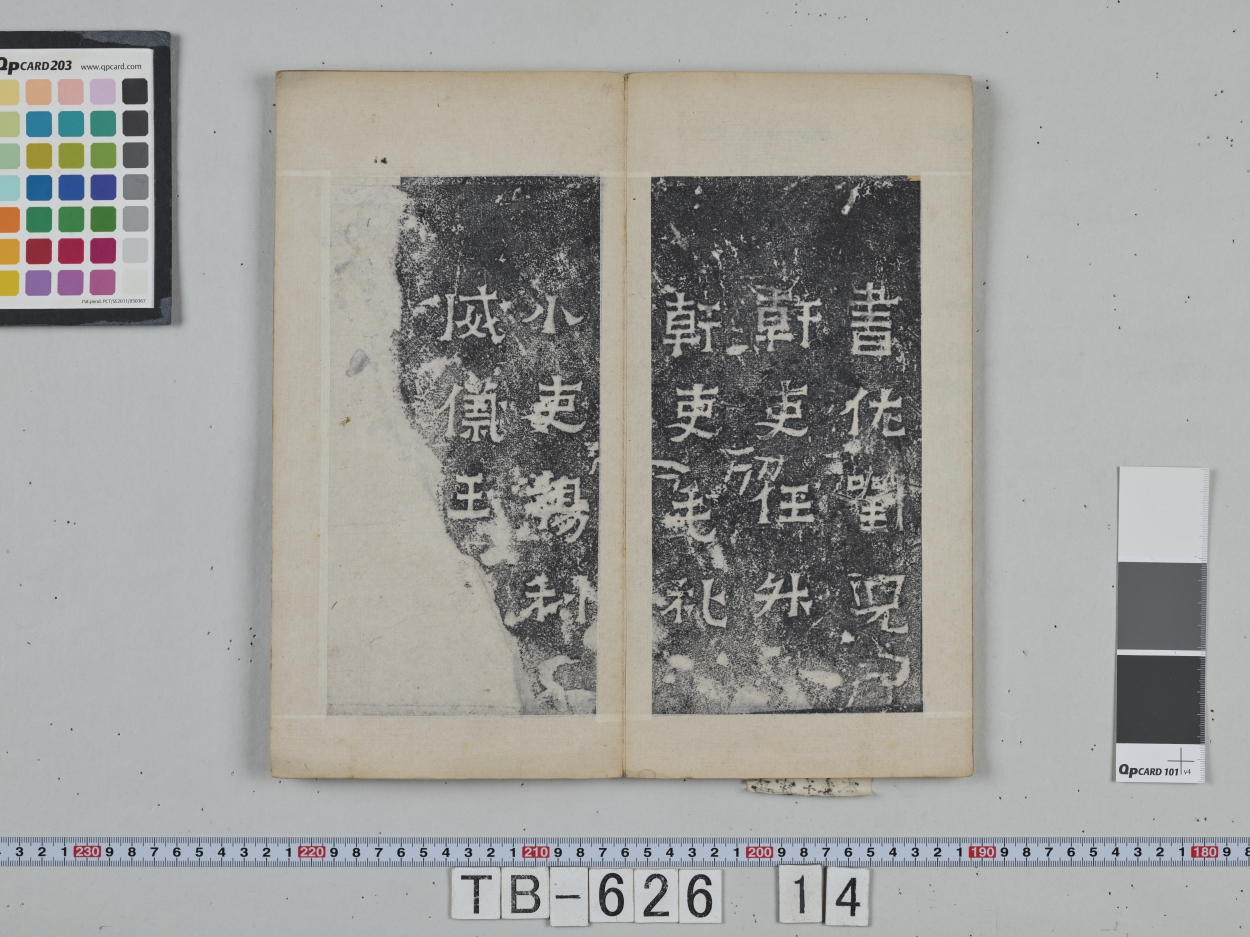 書佐劉
幹吏任升
幹吏毛
小吏楊利
威儀王
QpCARD 203 www.qpcard.com
QpCARD 101 v4
3 2 1 230 9 8 7 6 5 4 3 2 1 220 9 8 7 6 5 4 3 2 1 210 9 8 7 6 5 4 3 2 1 200 9 8 7 6 5 4 3 2 1 190 9 8 7 6 5 4 3 2 1 180 9 8
TB-626 14